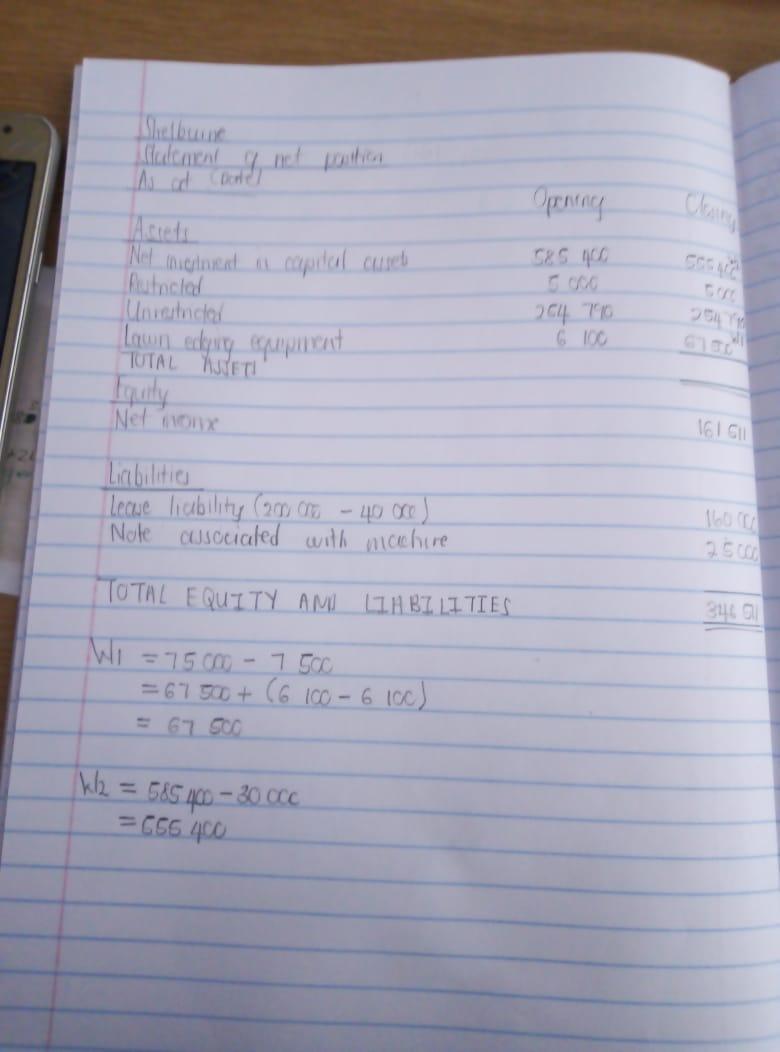 Shelburne
Statement of net position
As at (Date)
Opening Closing
Assets
Net investment in capital assets 585 400 555 400
Restricted 5 000 5 000
Unrestricted 254 790 254 790
Lawn edging equipment 6 100 67 500 W1
TOTAL ASSETS
Equity
Net income 161 511
Liabilities
Leave liability (200 000 - 40 000) 160 000
Note associated with machine 25 000
TOTAL EQUITY AND LIABILITIES 346 511
W1 = 75 000 - 7 500
= 67 500 + (6 100 - 6 100)
= 67 500
W2 = 585 400 - 30 000
= 555 400